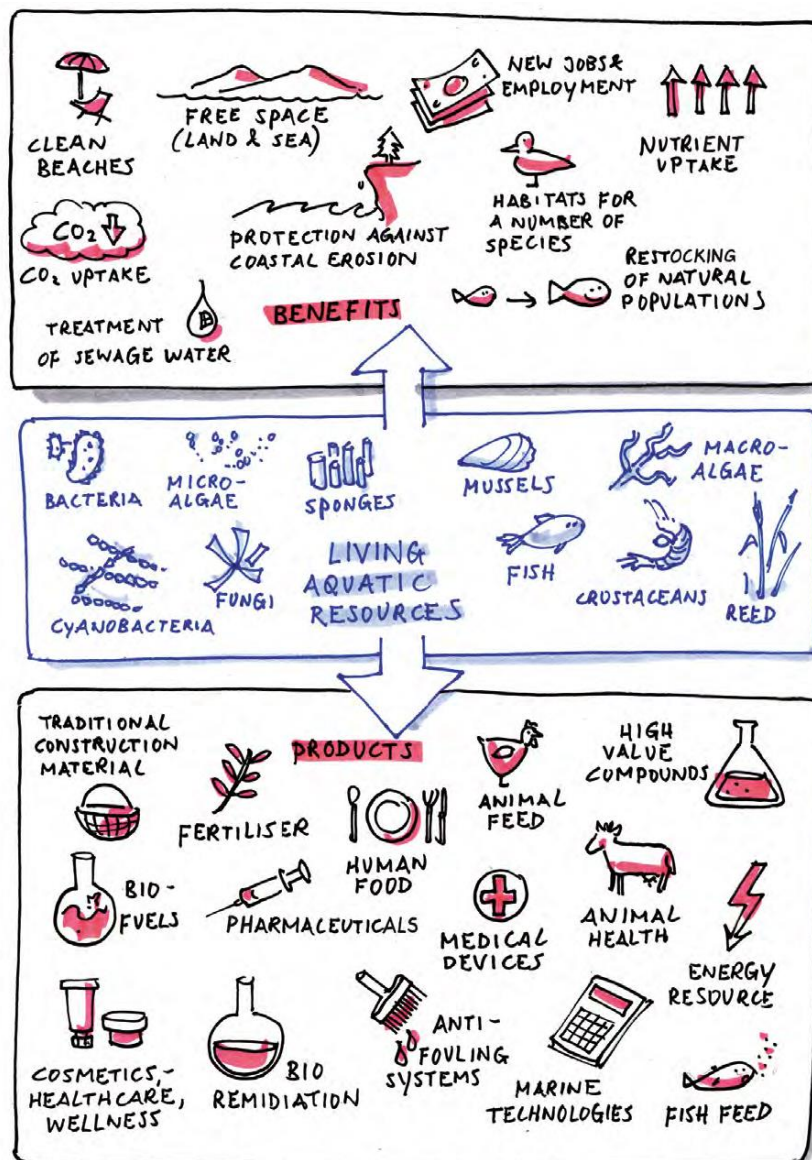 CLEAN
BEACHES
FREE SPACE
(LAND & SEA)
NEW JOBS &
EMPLOYMENT
NUTRIENT
UPTAKE
CO₂
CO₂ UPTAKE
PROTECTION AGAINST
COASTAL EROSION
HABITATS FOR
A NUMBER OF
SPECIES
RESTOCKING
OF NATURAL
POPULATIONS
TREATMENT
OF SEWAGE WATER
BENEFITS
BACTERIA
MICRO-
ALGAE
SPONGES
MUSSELS
MACRO-
ALGAE
CYANOBACTERIA
FUNGI
LIVING
AQUATIC
RESOURCES
FISH
CRUSTACEANS
REED
TRADITIONAL
CONSTRUCTION
MATERIAL
FERTILISER
PRODUCTS
HUMAN
FOOD
ANIMAL
FEED
HIGH
VALUE
COMPOUNDS
BIO-
FUELS
PHARMACEUTICALS
MEDICAL
DEVICES
ANIMAL
HEALTH
ENERGY
RESOURCE
COSMETICS,-
HEALTHCARE,
WELLNESS
BIO
REMIDIATION
ANTI-
FOULING
SYSTEMS
MARINE
TECHNOLOGIES
FISH FEED